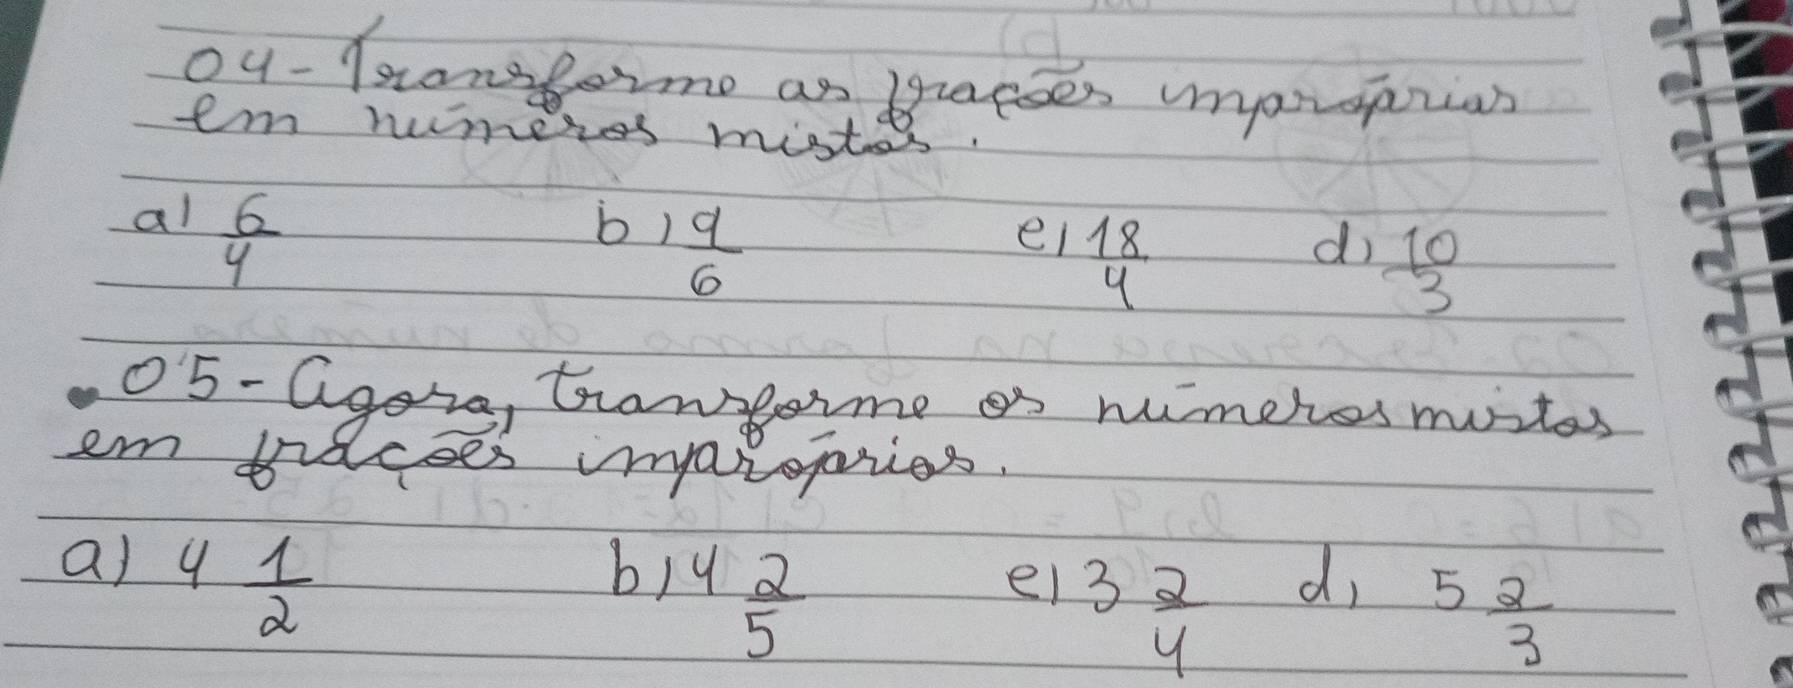 04- Transforme as frações impróprias
em números mistos.
a) 6/4 b) 9/6 c) 18/4 d) 10/3
05- Agora, transforme os números mistos
em frações impróprias.
a) 4 1/2 b) 4 2/5 c) 3 2/4 d) 5 2/3